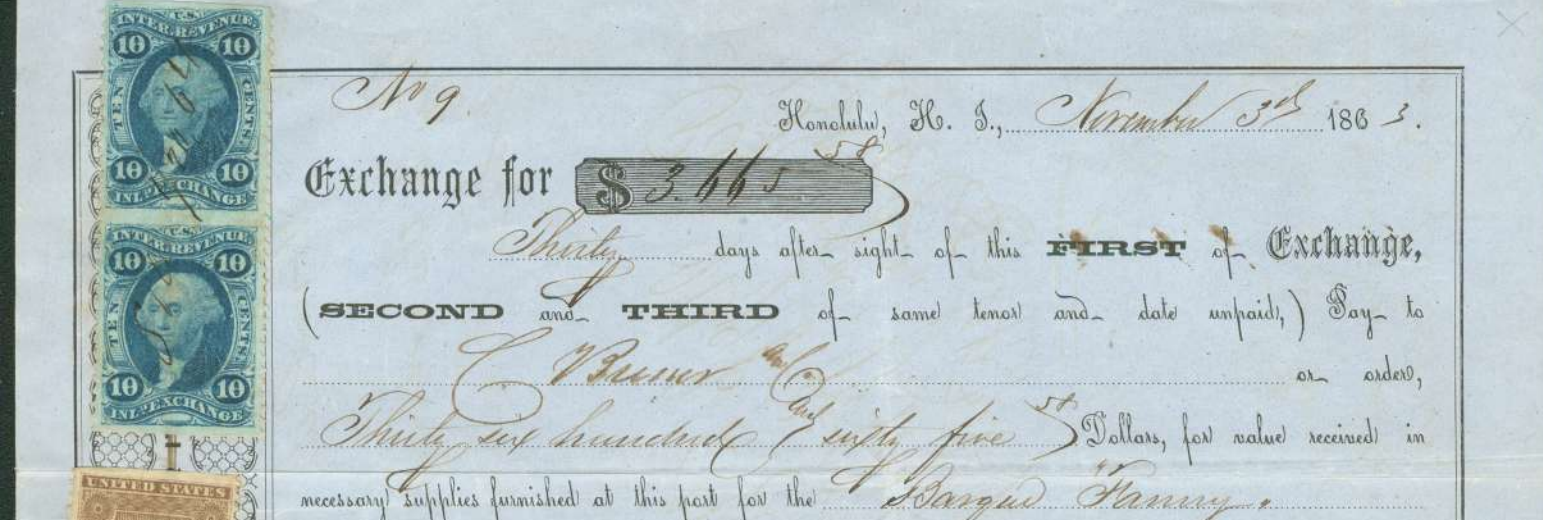 U.S.
INTER. REVENUE.
10 10
TEN CENTS
10 10
INL. EXCHANGE
U.S.
INTER. REVENUE.
10 10
TEN CENTS.
10 10
INL. EXCHANGE
UNITED STATES
No 9.
Honolulu, H. I., November 3rd 1863.
Exchange for $ 3.665 58
Thirty days after sight of this FIRST of Exchange,
(SECOND and THIRD of same tenor and date unpaid,) Pay to
C Brewer and Co. or order,
Thirty six hundred and sixty five 58 Dollars, for value received in
necessary supplies furnished at this port for the Barque "Fanny".